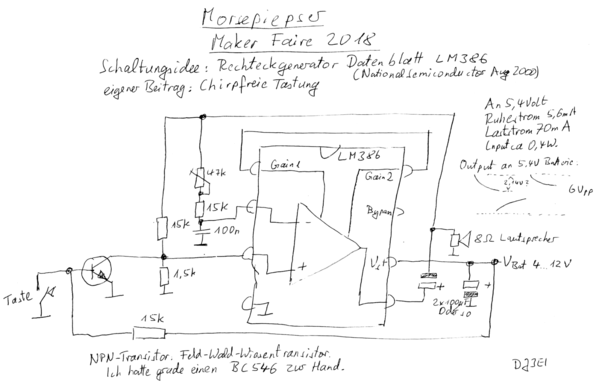 Morsepiepser
Maker Faire 2018
Schaltungsidee: Rechteckgenerator Datenblatt LM386
(National Semiconductor Aug 2000)
eigener Beitrag: Chirpfreie Tastung
An 5,4 Volt
Ruhestrom 5,6mA
Laststrom 70mA
Input ca 0,4W.
Output an 5.4V Batterie:
6Vpp
LM386
Gain1
Gain2
47k
15k
15k
100n
Bypass
8Ω Lautsprecher
1,5k
Vs+
VBat 4...12V
+
+
-
+
Taste
2x100µF
15k
NPN-Transistor. Feld-Wald-Wiesentransistor.
Ich hatte grade einen BC546 zur Hand.
DJ3EI